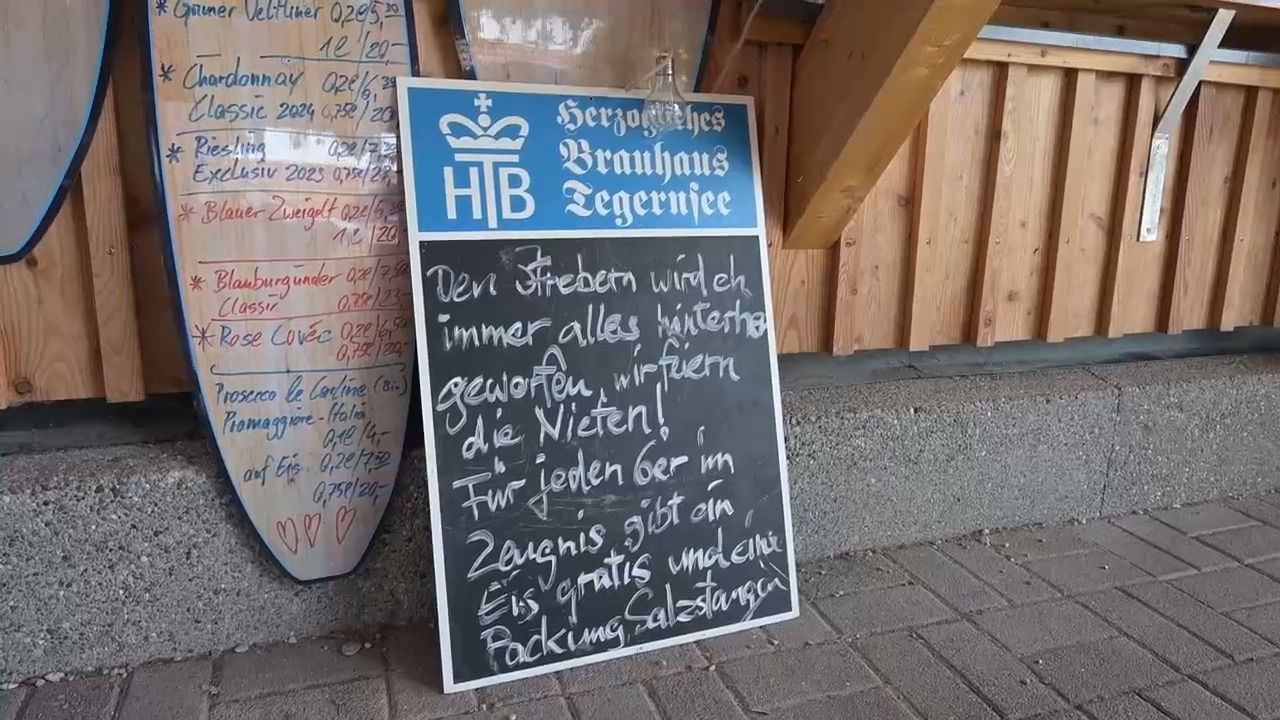 * Grüner Veltliner 0,2l/5,30
1l/20,-
* Chardonnay 0,2l/6,30
Classic 2024 0,75l/20
* Riesling 0,2l/7,30
Exclusiv 2023 0,75l/
* Blauer Zweigelt 0,2l/5,30
1l/20,-
* Blauburgunder 0,2l/7,50
Classic 0,75l/23,-
* Rose Cuvée 0,2l/6,50
0,75l/20,-
Prosecco le Contine (Bio)
Pramaggiore-Italia
0,1l/4,-
auf Eis 0,2l/7,50
0,75l/20,-
HTB
Herzogliches
Brauhaus
Tegernsee
Den Strebern wird eh
immer alles hinterher
geworfen, wir feiern
die Nieten!
Für jeden 6er im
Zeugnis gibt ein
Eis gratis und eine
Packung Salzstangen